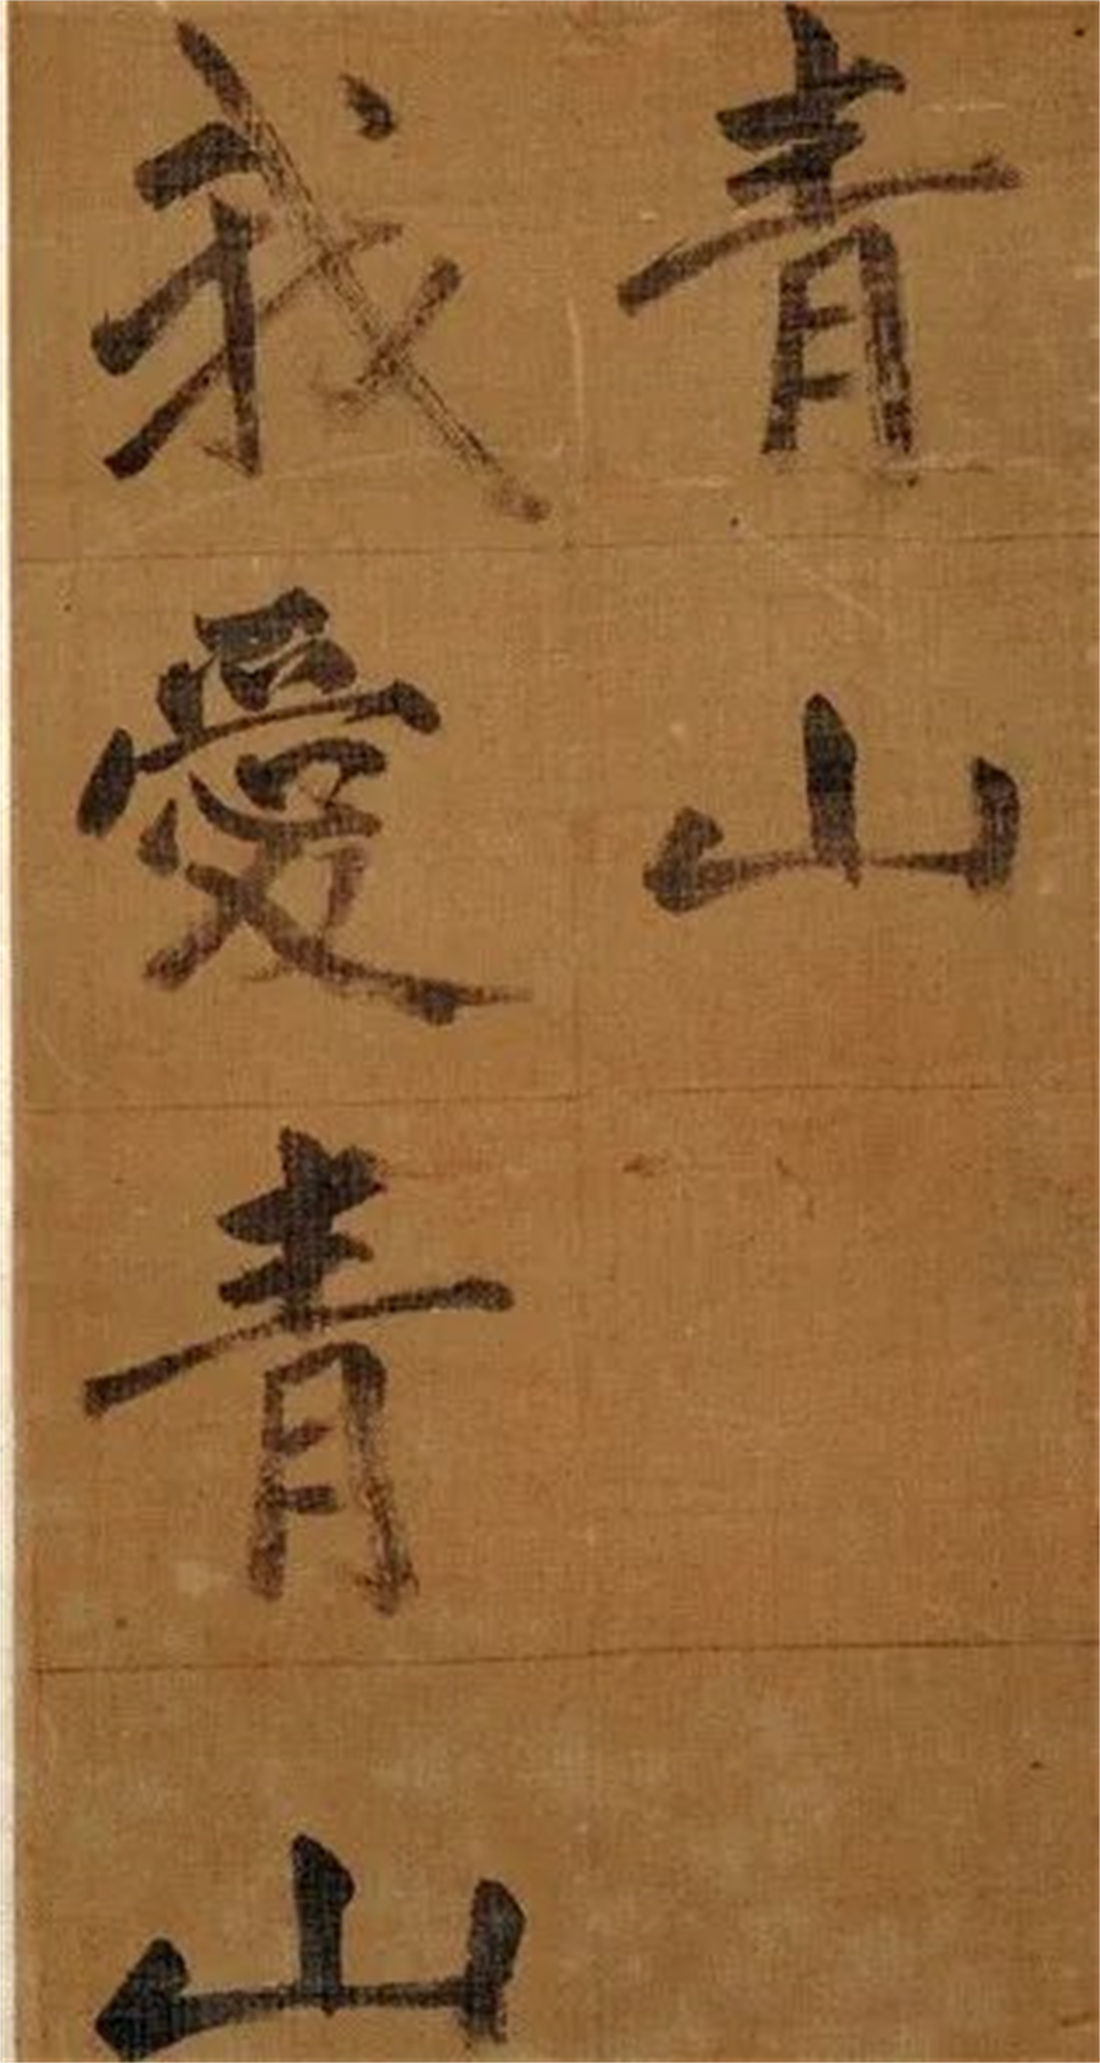 青山
我愛青山